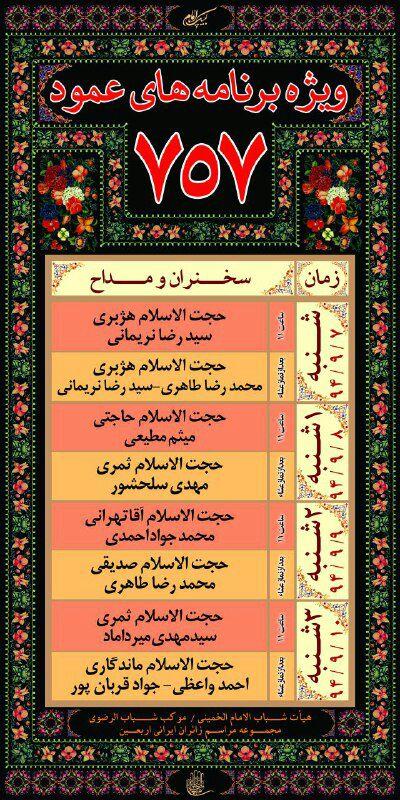 ویژه برنامه های عمود
۷۵۷
زمان
سخنران و مداح
شنبه
۹۴/۹/۷
ساعت ۱۱
حجت الاسلام هژبری
سید رضا نریمانی
بعد از نماز عشاء
حجت الاسلام هژبری
محمد رضا طاهری-سید رضا نریمانی
۱شنبه
۹۴/۹/۸
ساعت ۱۱
حجت الاسلام حاجتی
میثم مطیعی
بعد از نماز عشاء
حجت الاسلام ثمری
مهدی سلحشور
۲شنبه
۹۴/۹/۹
ساعت ۱۱
حجت الاسلام آقاتهرانی
محمد جواد احمدی
بعد از نماز عشاء
حجت الاسلام صدیقی
محمد رضا طاهری
۳شنبه
۹۴/۹/۱۰
ساعت ۱۱
حجت الاسلام ثمری
سیدمهدی میرداماد
بعد از نماز عشاء
حجت الاسلام ماندگاری
احمد واعظی- جواد قربان پور
هیأت شباب الامام الخمینی / موکب شباب الرضوی
مجموعه مراسم زائران ایرانی اربعین